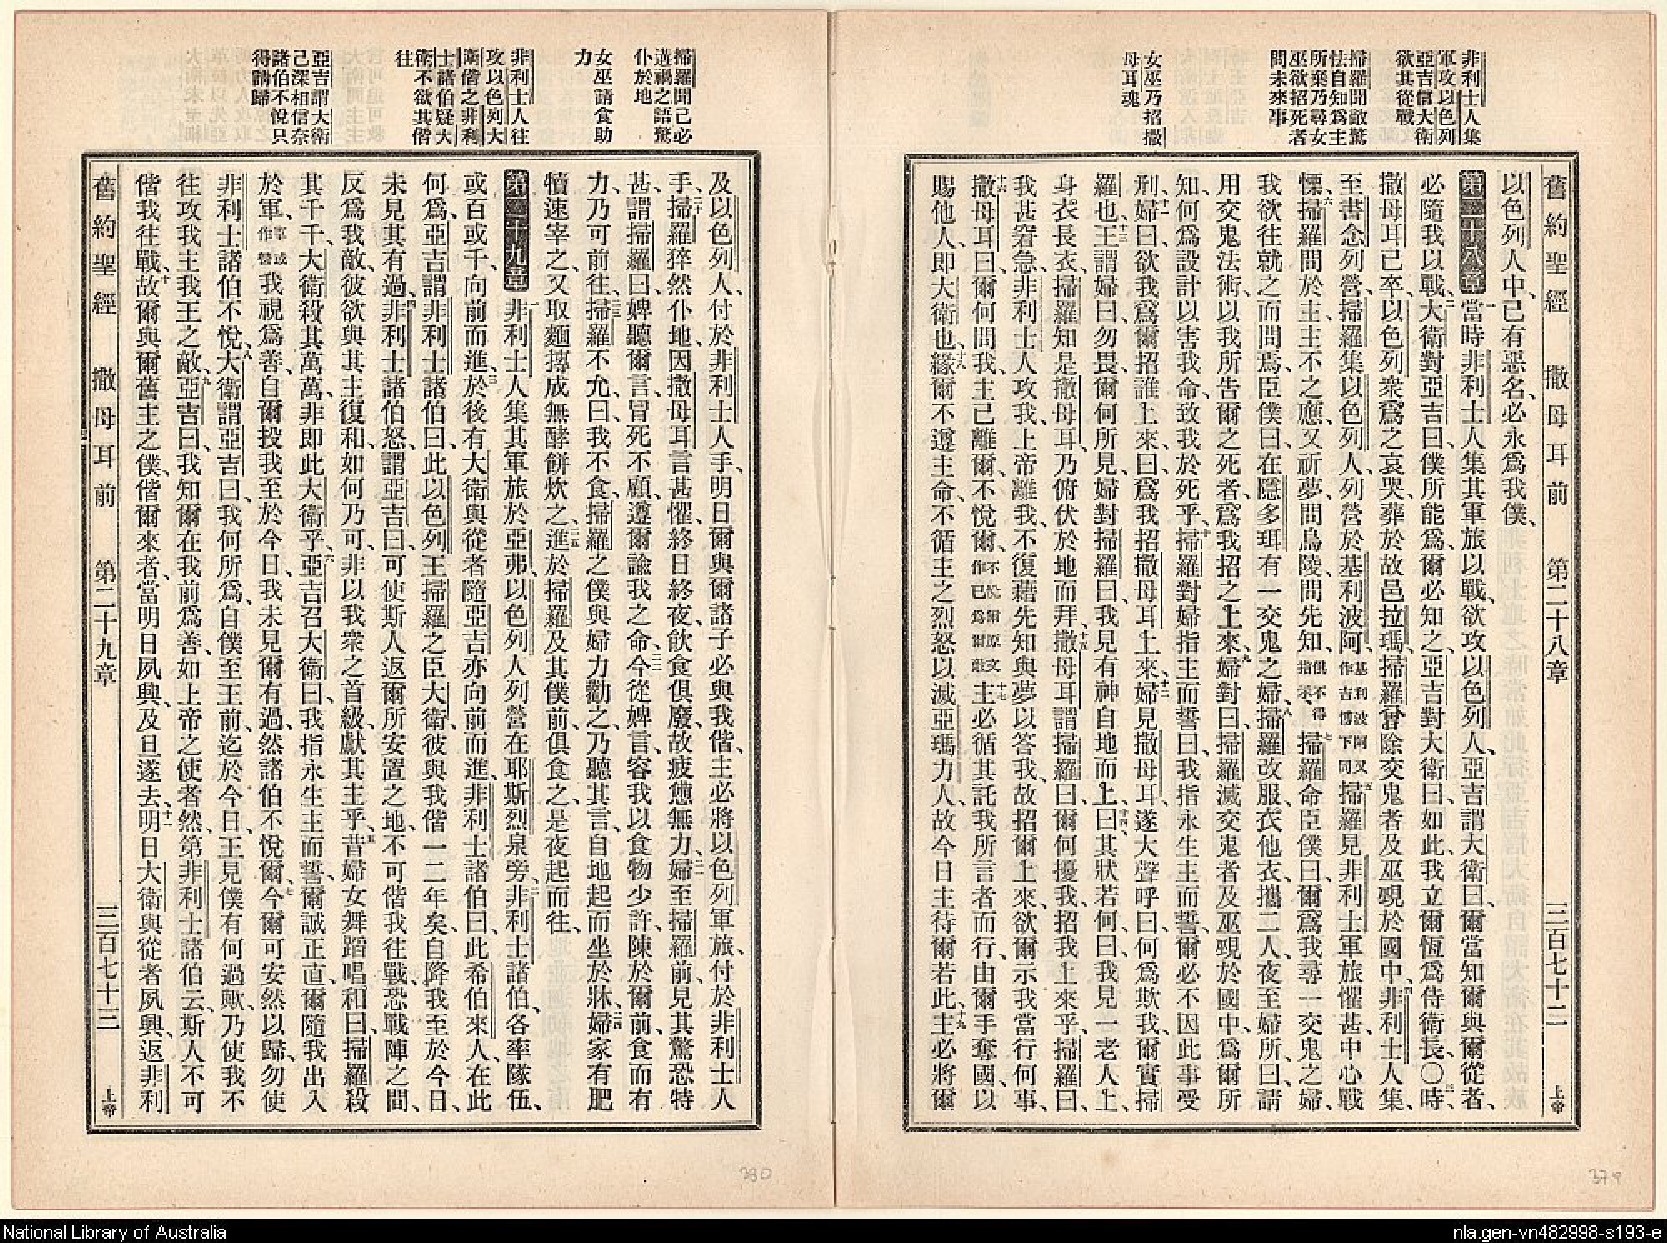 非利士人集
軍攻以色列
亞吉信大衛
欲其從戰
掃羅聞敵驚
怯自知爲主
所棄乃尋女
巫欲招死者
問未來事
女巫乃招撒
母耳魂
舊約聖經 撒母耳前 第二十八章 三百七十二 上帝
以色列人中已有惡名、必永爲我僕、
第二十八章 一當時非利士人集其軍旅以戰、欲攻以色列人、亞吉謂大衛曰、爾當知爾與爾從者、
必隨我以戰、二大衛對亞吉曰、僕所能爲、爾必知之、亞吉對大衛曰、如此、我立爾恆爲侍衛長、○三時
撒母耳已卒、以色列衆爲之哀哭、葬於故邑拉瑪、掃羅曾除交鬼者及巫覡於國中、四非利士人集、
至書念列營、掃羅集以色列人、列營於基利波阿、基利波阿又作吉僄下同五掃羅見非利士軍旅、懼甚、中心戰
慄、六掃羅問於主、主不之應、又祈夢、問烏陵、問先知、俱不得指示、七掃羅命臣僕曰、爾爲我尋一交鬼之婦、
我欲往就之而問焉、臣僕曰、在隱多珥有一交鬼之婦、八掃羅改服、衣他衣、攜二人、夜至婦所、曰、請
用交鬼法術、以我所告爾之死者、爲我招之上來、九婦對曰、掃羅滅交鬼者及巫覡於國中、爲爾所
知、何爲設計以害我命、致我於死乎、十掃羅對婦指主而誓曰、我指永生主而誓、爾必不因此事受
刑、十一婦曰、欲我爲爾招誰上來、曰、爲我招撒母耳上來、十二婦見撒母耳、遂大聲呼曰、何爲欺我、爾實掃
羅也、十三王謂婦曰、勿畏、爾何所見、婦對掃羅曰、我見有神自地而上、十四曰、其狀若何、曰、我見一老人上、
身衣長衣、掃羅知是撒母耳、乃俯伏於地而拜、十五撒母耳謂掃羅曰、爾何擾我、招我上來乎、掃羅曰、
我甚窘急、非利士人攻我、上帝離我、不復藉先知與夢以答我、故招爾上來、欲爾示我當行何事、
十六撒母耳曰、爾何問我、主已離爾、不悅爾、不悅爾原文作已爲爾敵十七主必循其託我所言者而行、由爾手奪國以
賜他人、即大衛也、十八緣爾不遵主命、不循主之烈怒以滅亞瑪力人、故今日主待爾若此、十九主必將爾
掃羅聞己必
遘禍之語驚
仆於地
女巫請食助
力
非利士人往
攻以色列大
衛偕之非利
士諸伯疑大
衛不欲其偕
往
亞吉謂大衛
己深相信奈
諸伯不悅只
得請歸
及以色列人、付於非利士人手、明日爾與爾諸子必與我偕、主必將以色列軍旅、付於非利士人
手、二十掃羅猝然仆地、因撒母耳言甚懼、終日終夜、飲食俱廢、故疲憊無力、二一婦至掃羅前、見其驚恐特
甚、謂掃羅曰、婢聽爾言、冒死不顧、遵爾諭我之命、二二今從婢言、容我以食物少許陳於爾前、食而有
力、乃可前往、二三掃羅不允曰、我不食、掃羅之僕與婦力勸之、乃聽其言、自地起而坐於牀、二四婦家有肥
犢、速宰之、又取麵摶成無酵餅炊之、二五進於掃羅及其僕前、俱食之、是夜起而往、
第二十九章 一非利士人集其軍旅於亞弗、以色列人列營在耶斯烈泉旁、二非利士諸伯、各率隊伍、
或百或千、向前而進、於後有大衛與從者、隨亞吉亦向前而進、三非利士諸伯曰、此希伯來人、在此
何爲、亞吉謂非利士諸伯曰、此以色列王掃羅之臣大衛、彼與我偕一二年矣、自降我至於今日、
未見其有過、四非利士諸伯怒、謂亞吉曰、可使斯人返爾所安置之地、不可偕我往戰、恐戰陣之間、
反爲我敵、彼欲與其主復和、如何乃可、非以我衆之首級、獻其主乎、五昔婦女舞蹈唱和曰、掃羅殺
其千千、大衛殺其萬萬、非即此大衛乎、六亞吉召大衛曰、我指永生主而誓、爾誠正直、爾隨我出入
於軍、軍或作營我視爲善、自爾投我至於今日、我未見爾有過、然諸伯不悅爾、七今爾可安然以歸、勿使
非利士諸伯不悅、八大衛謂亞吉曰、我何所爲、自僕至王前、迄於今日、王見僕有何過歟、乃使我不
往攻我主我王之敵、九亞吉曰、我知爾在我前爲善、如上帝之使者然、第非利士諸伯云、斯人不可
偕我往戰、十故爾與爾舊主之僕、偕爾來者、當明日夙興、及旦遂去、十一明日大衛與從者夙興、返非利
舊約聖經 撒母耳前 第二十九章 三百七十三 上帝
380
379
National Library of Australia
nla.gen-vn482998-s193-e